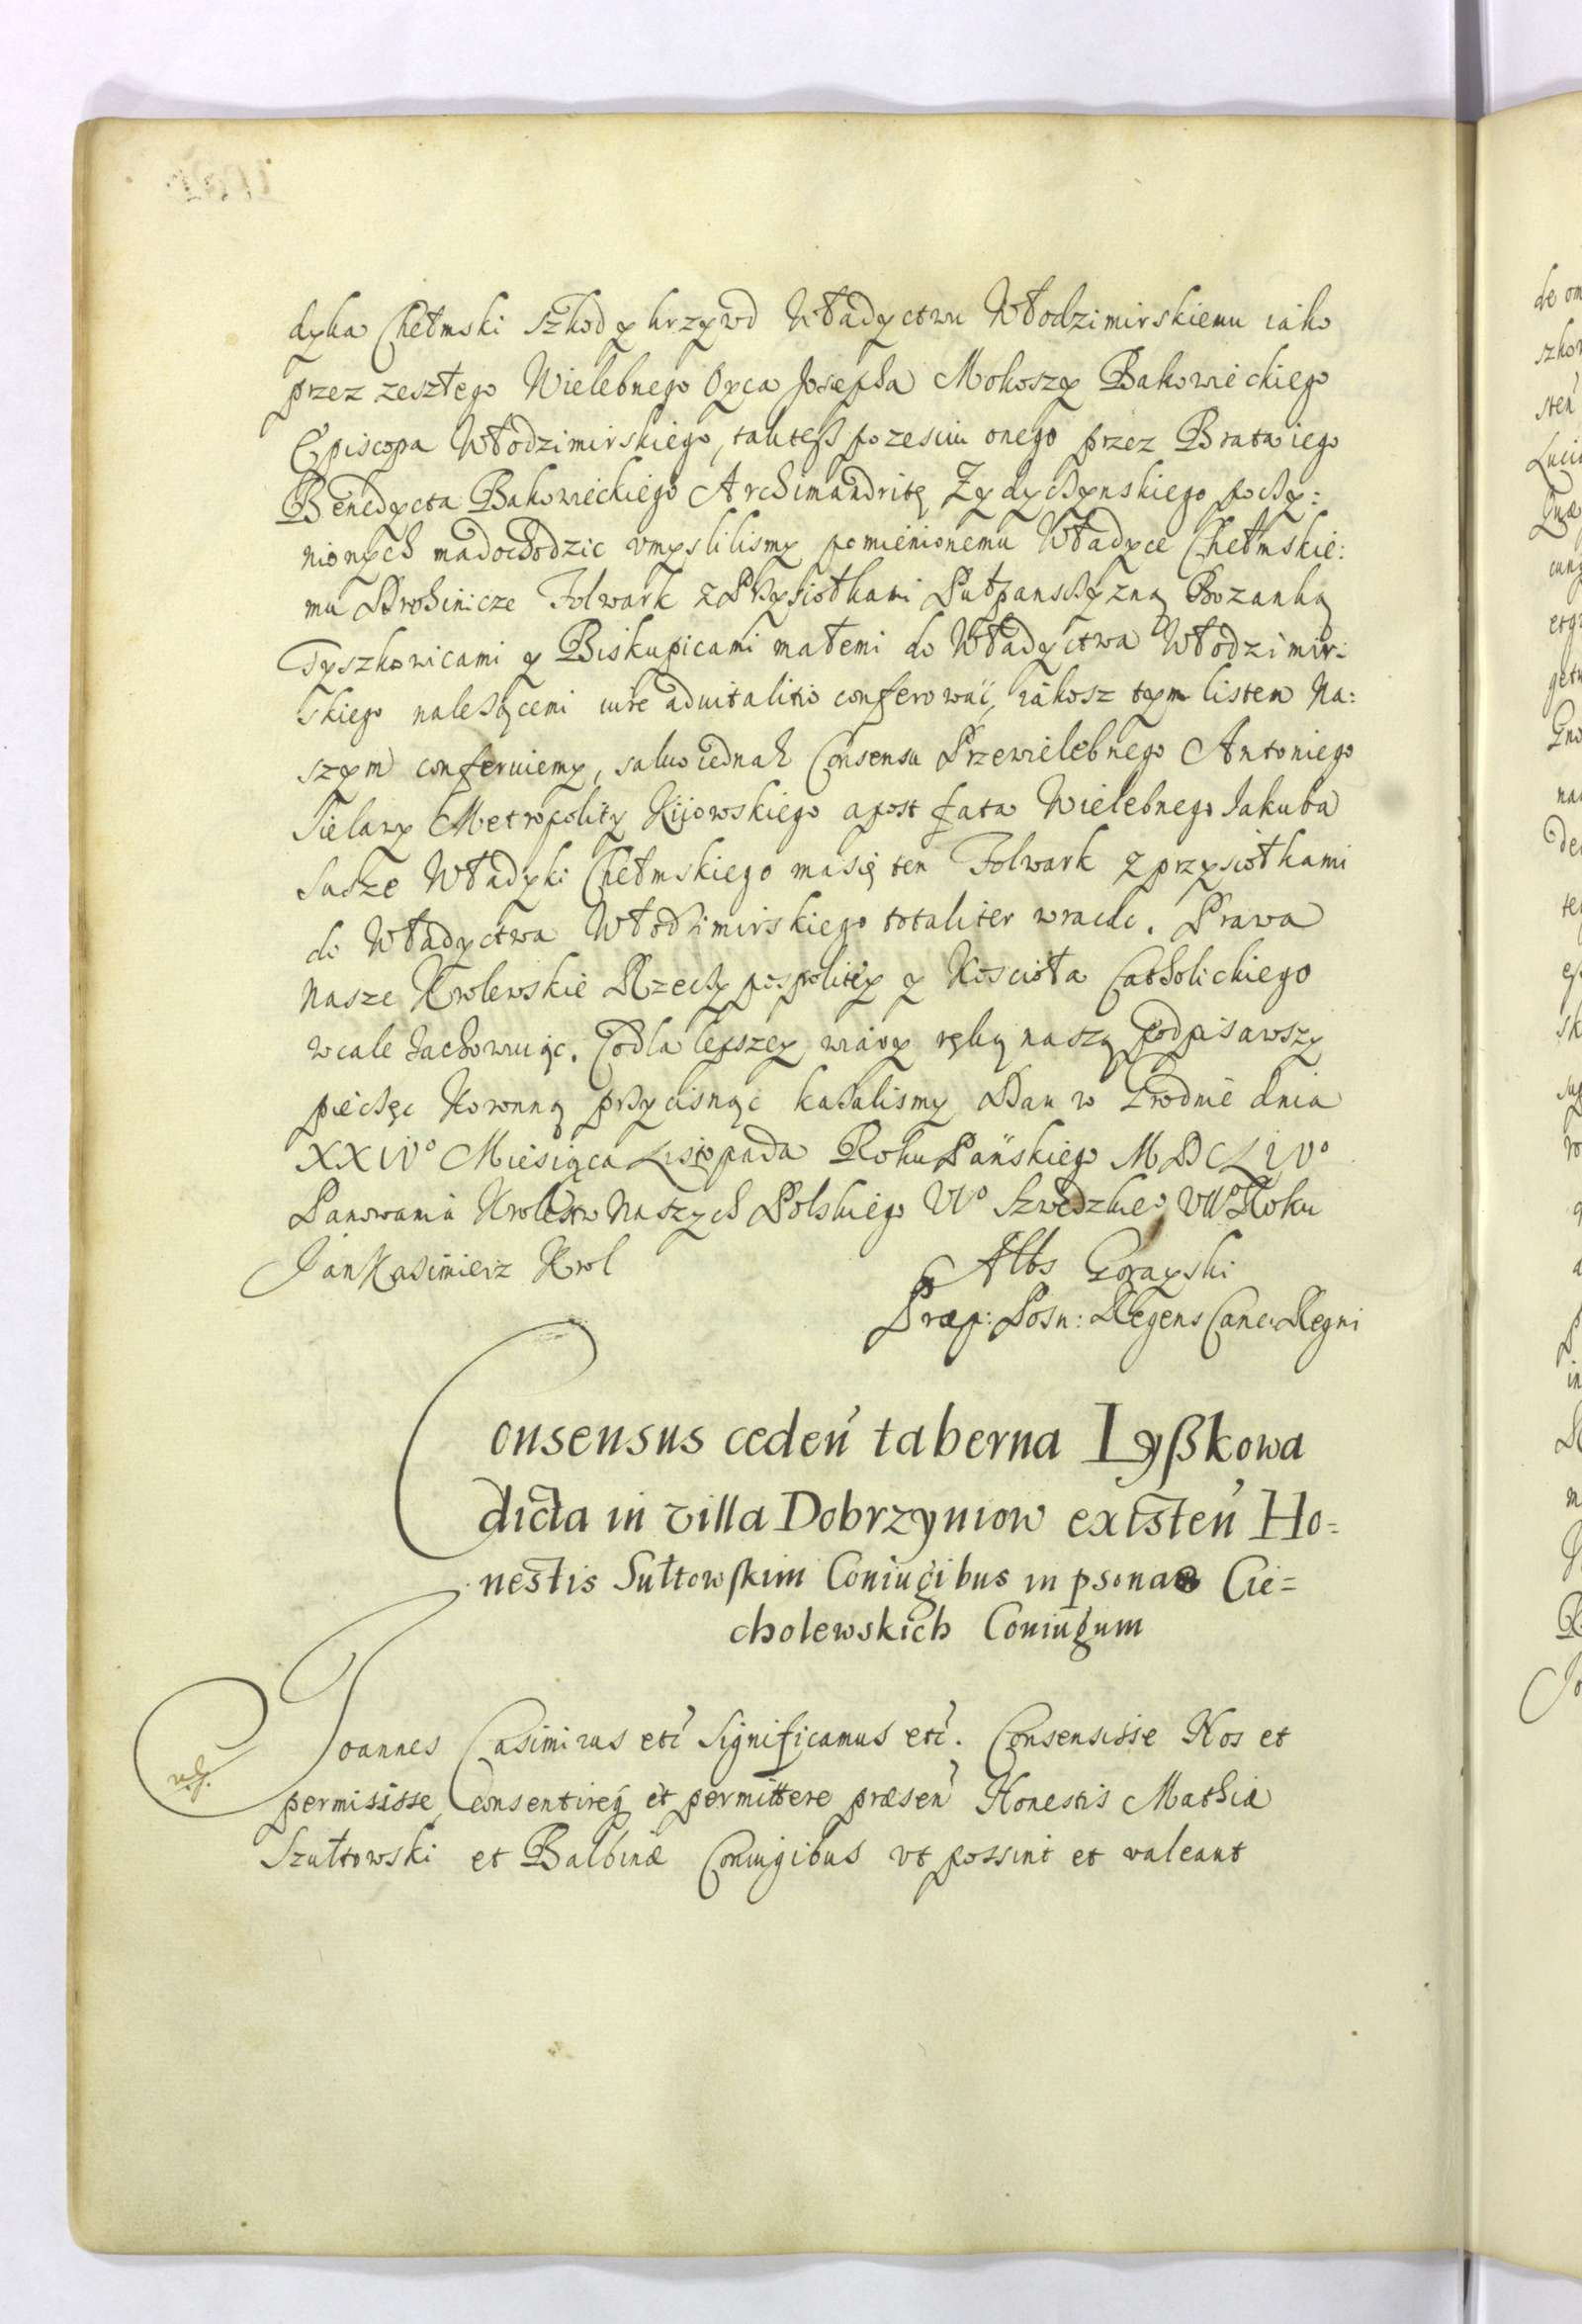 dyka Chełmski szkod y krzywd Władyctwu Włodzimirskiemu iako
przez zeszłego Wielebnego Oyca Josepha Mokoszy Bakowieckiego
Episcopa Włodzimirskiego, takteß po zesciu onego przez Brata iego
Benedycta Bakowieckiego Archimandritę Zydyczynskiego poczy:
nionych ma dochodzic vmyslilismy pomienionemu Władyce Chełmskie:
mu Folwark z Przysiołkami Bozanką
Tyszkowicami y Biskupicami małemi do Władyctwa Włodzimir:
skiego należącemi iure aduitalitio conferować, iakosz tym listem Na:
szym conferuiemy, saluo iednak Consensu Przewielebnego Antoniego
Sielawy Metropolity Kijowskiego a post fata Wielebnego Jakuba
Susze Władyki Chełmskiego ma się ten Folwark z przysiołkami
do Władyctwa Włodzimirskiego totaliter wracac. Prawa
Nasze Krolewskie Rzeczy pospolitey y Koscioła Catholickiego
wcale zachowuiąc. Co dla lepszey wiary ręką naszą podpisawszy
pieczęc Koronną przycisnąc kazalismy Dan w Grodnie dnia
XXIVº Miesiąca Listopada Roku Pańskiego MDCLIVº
Panowania Krolestw Naszych Polskiego VIº Szwedzkieº VIIº Roku
Jan Kazimierz Krol Albs Gorayski
Præp: Posn: Regens Canc: Regni
Consensus ceden̄ taberna Lyßkowa
dicta in villa Dobrzyniow existen̄ Ho=
nestis Sułtowskim Coniugibus in psonas Cie=
cholewskich Coniugum
Joannes Casimirus etc̄ Significamus etc̄. Consensisse Nos et
permisisse, Consentireq et permittere præsen̄ Honestis Mathiæ
Szułtowski et Balbinæ Coniugibus vt possint et valeant